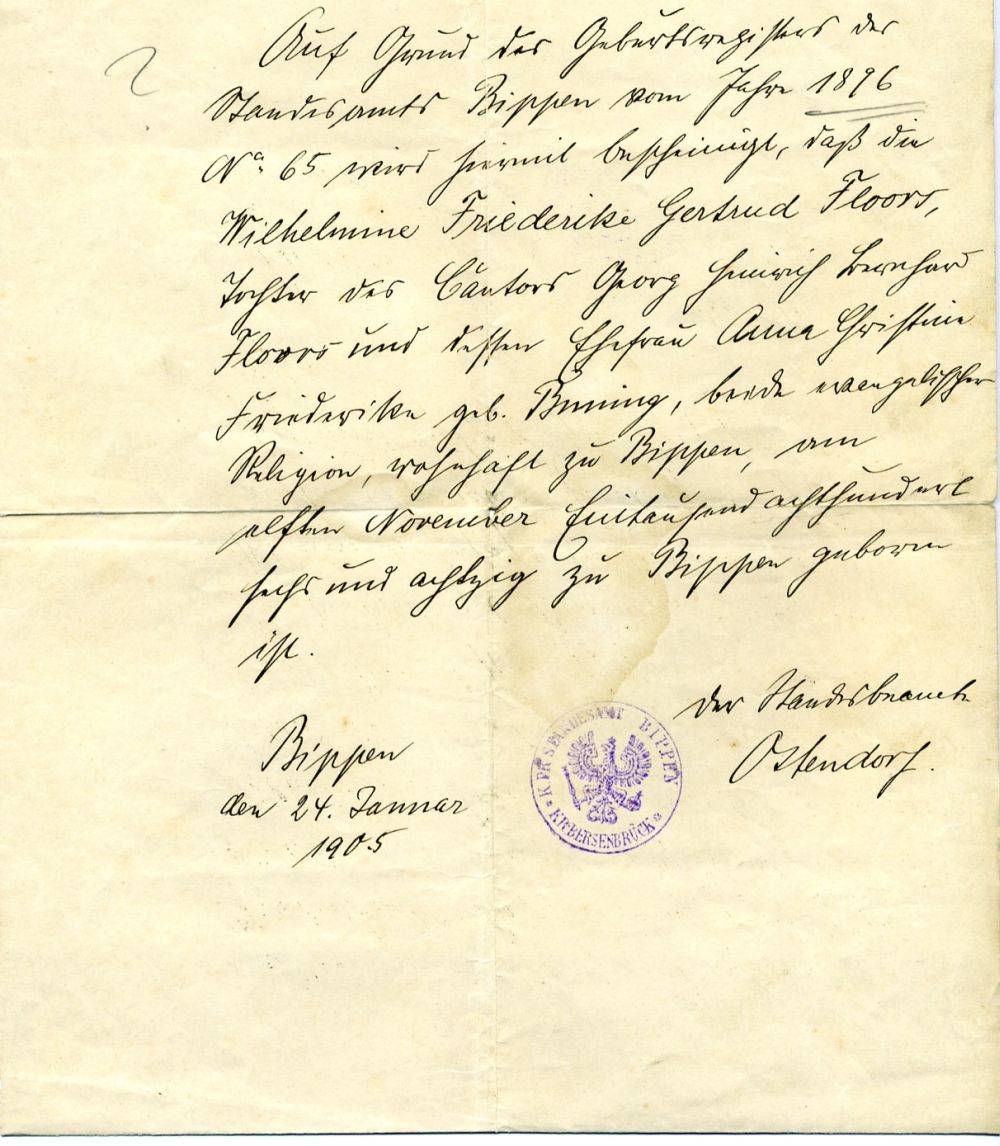 Auf Grund des Geburtsregisters des
Standesamts Bippen vom Jahre 1896
No. 65 wird hiermit bescheinigt, daß die
Wilhelmine Friederike Gertrud Floors,
Tochter des Cantors Georg Heinrich Bernhard
Floors und dessen Ehefrau Anna Christine
Friederike geb. Buning, beide evangelischer
Religion, wohnhaft zu Bippen, am
elften November Eintausend achthundert
sechs und achtzig zu Bippen geboren
ist.
Der Standesbeamte
Ostendorf.
Bippen
den 24. Januar
1905
K. PR. STANDESAMT BIPPEN
KR. BERSENBRÜCK